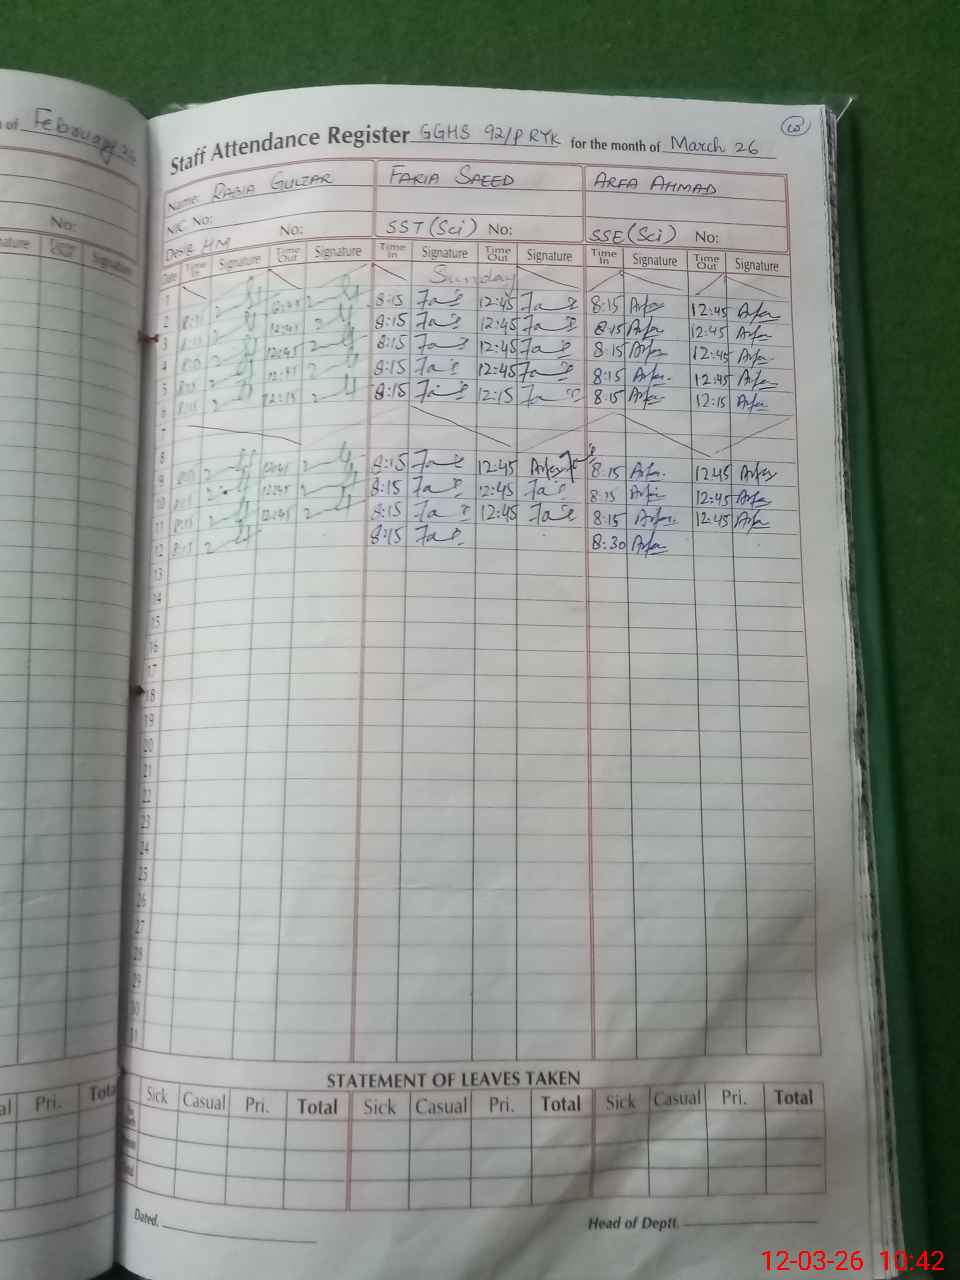 of February 26
Staff Attendance Register GGHS 92/P RYK for the month of March 26
Name: RABIA GULZAR FARIA SAEED ARFA AHMAD
N/C No:
No:
Desig. HM No: SST (Sci) No: SSE (Sci) No:
Date Time In Signature Time Out Signature Time In Signature Time Out Signature Time In Signature Time Out Signature
1 Sunday
2 8:15 12:45 8:15 12:45 8:15 Arfa 12:45 Arfa
3 8:15 12:45 8:15 12:45 8:15 Arfa 12:45 Arfa
4 8:15 12:45 8:15 12:45 8:15 Arfa 12:45 Arfa
5 8:15 12:45 8:15 12:45 8:15 Arfa 12:45 Arfa
6 8:15 12:15 8:15 12:15 8:15 Arfa 12:15 Arfa
7
8
9 12:45 8:15 12:45 8:15 Arfa 12:45 Arfa
10 8:15 12:45 8:15 12:45 8:15 Arfa 12:45 Arfa
11 8:15 12:45 8:15 12:45 8:15 Arfa 12:45 Arfa
12 8:15 8:15 8:30 Arfa
13
14
15
16
17
18
19
20
21
22
23
24
25
26
27
28
29
30
31
STATEMENT OF LEAVES TAKEN
Pri. Total Sick Casual Pri. Total Sick Casual Pri. Total Sick Casual Pri. Total
Dated. Head of Deptt.
12-03-26 10:42